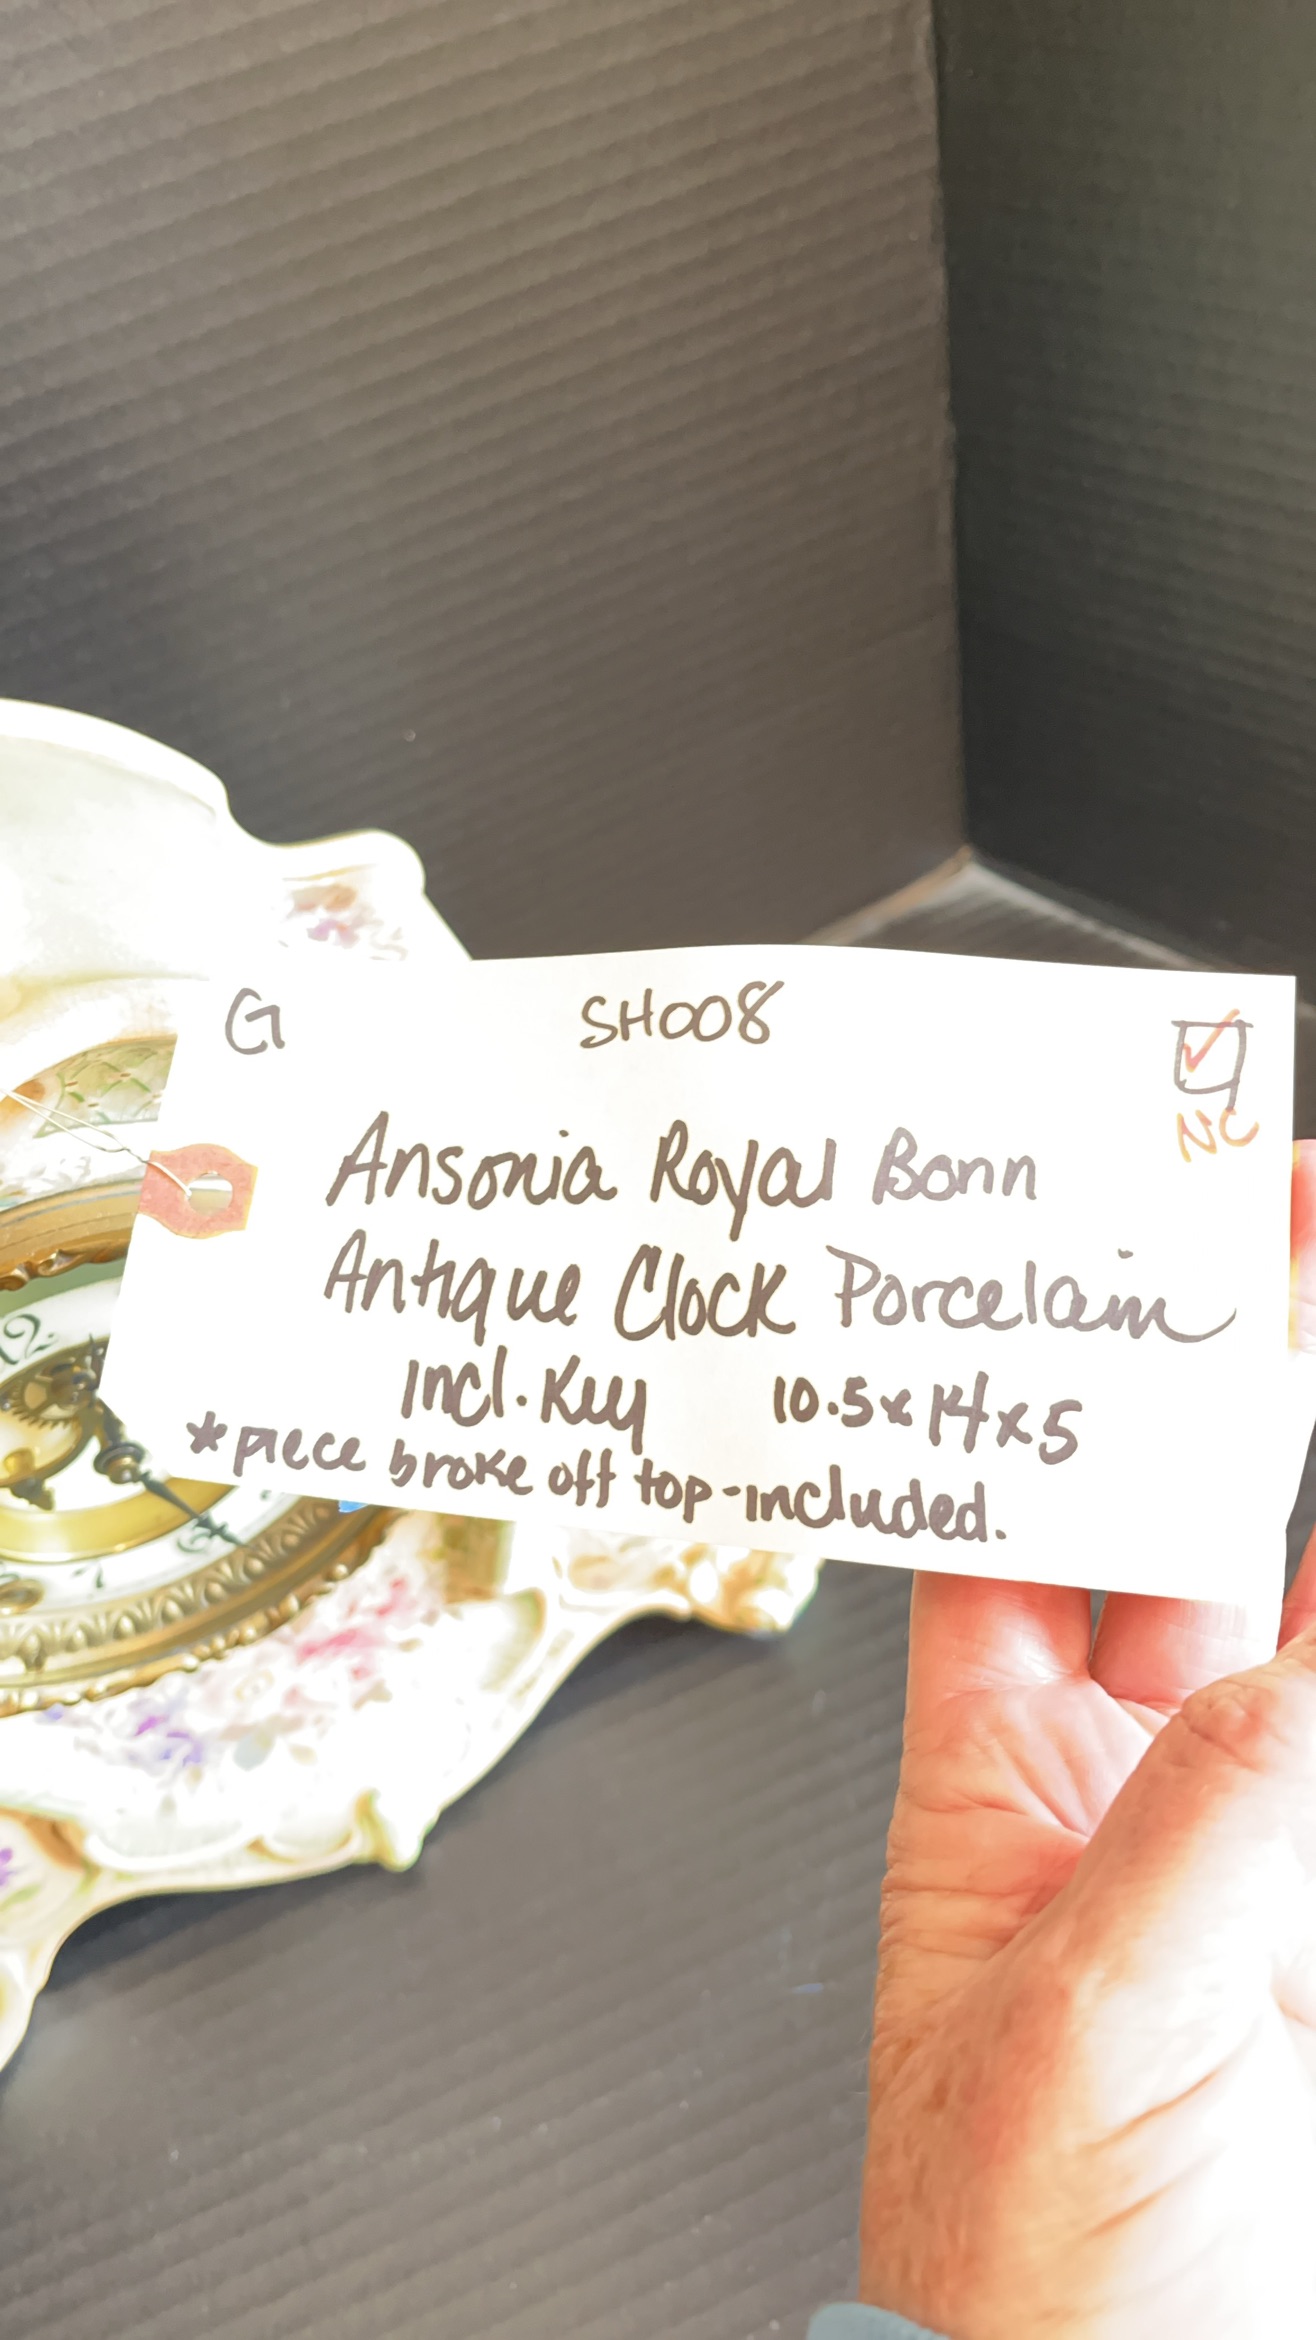 G SH008
NC
Ansonia Royal Bonn
Antique Clock Porcelain
Incl. Key 10.5 x 14 x 5
*piece broke off top-included.
12